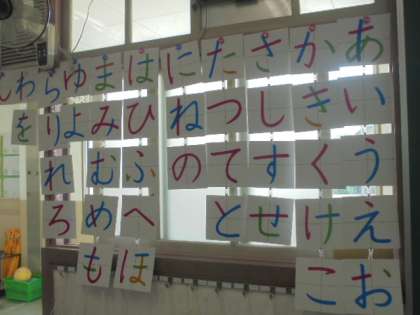 あいうえお
かきくけこ
さしすせ
たつてと
にねの
はひふへほ
まみむめも
ゆよ
らりれろ
わを
ん